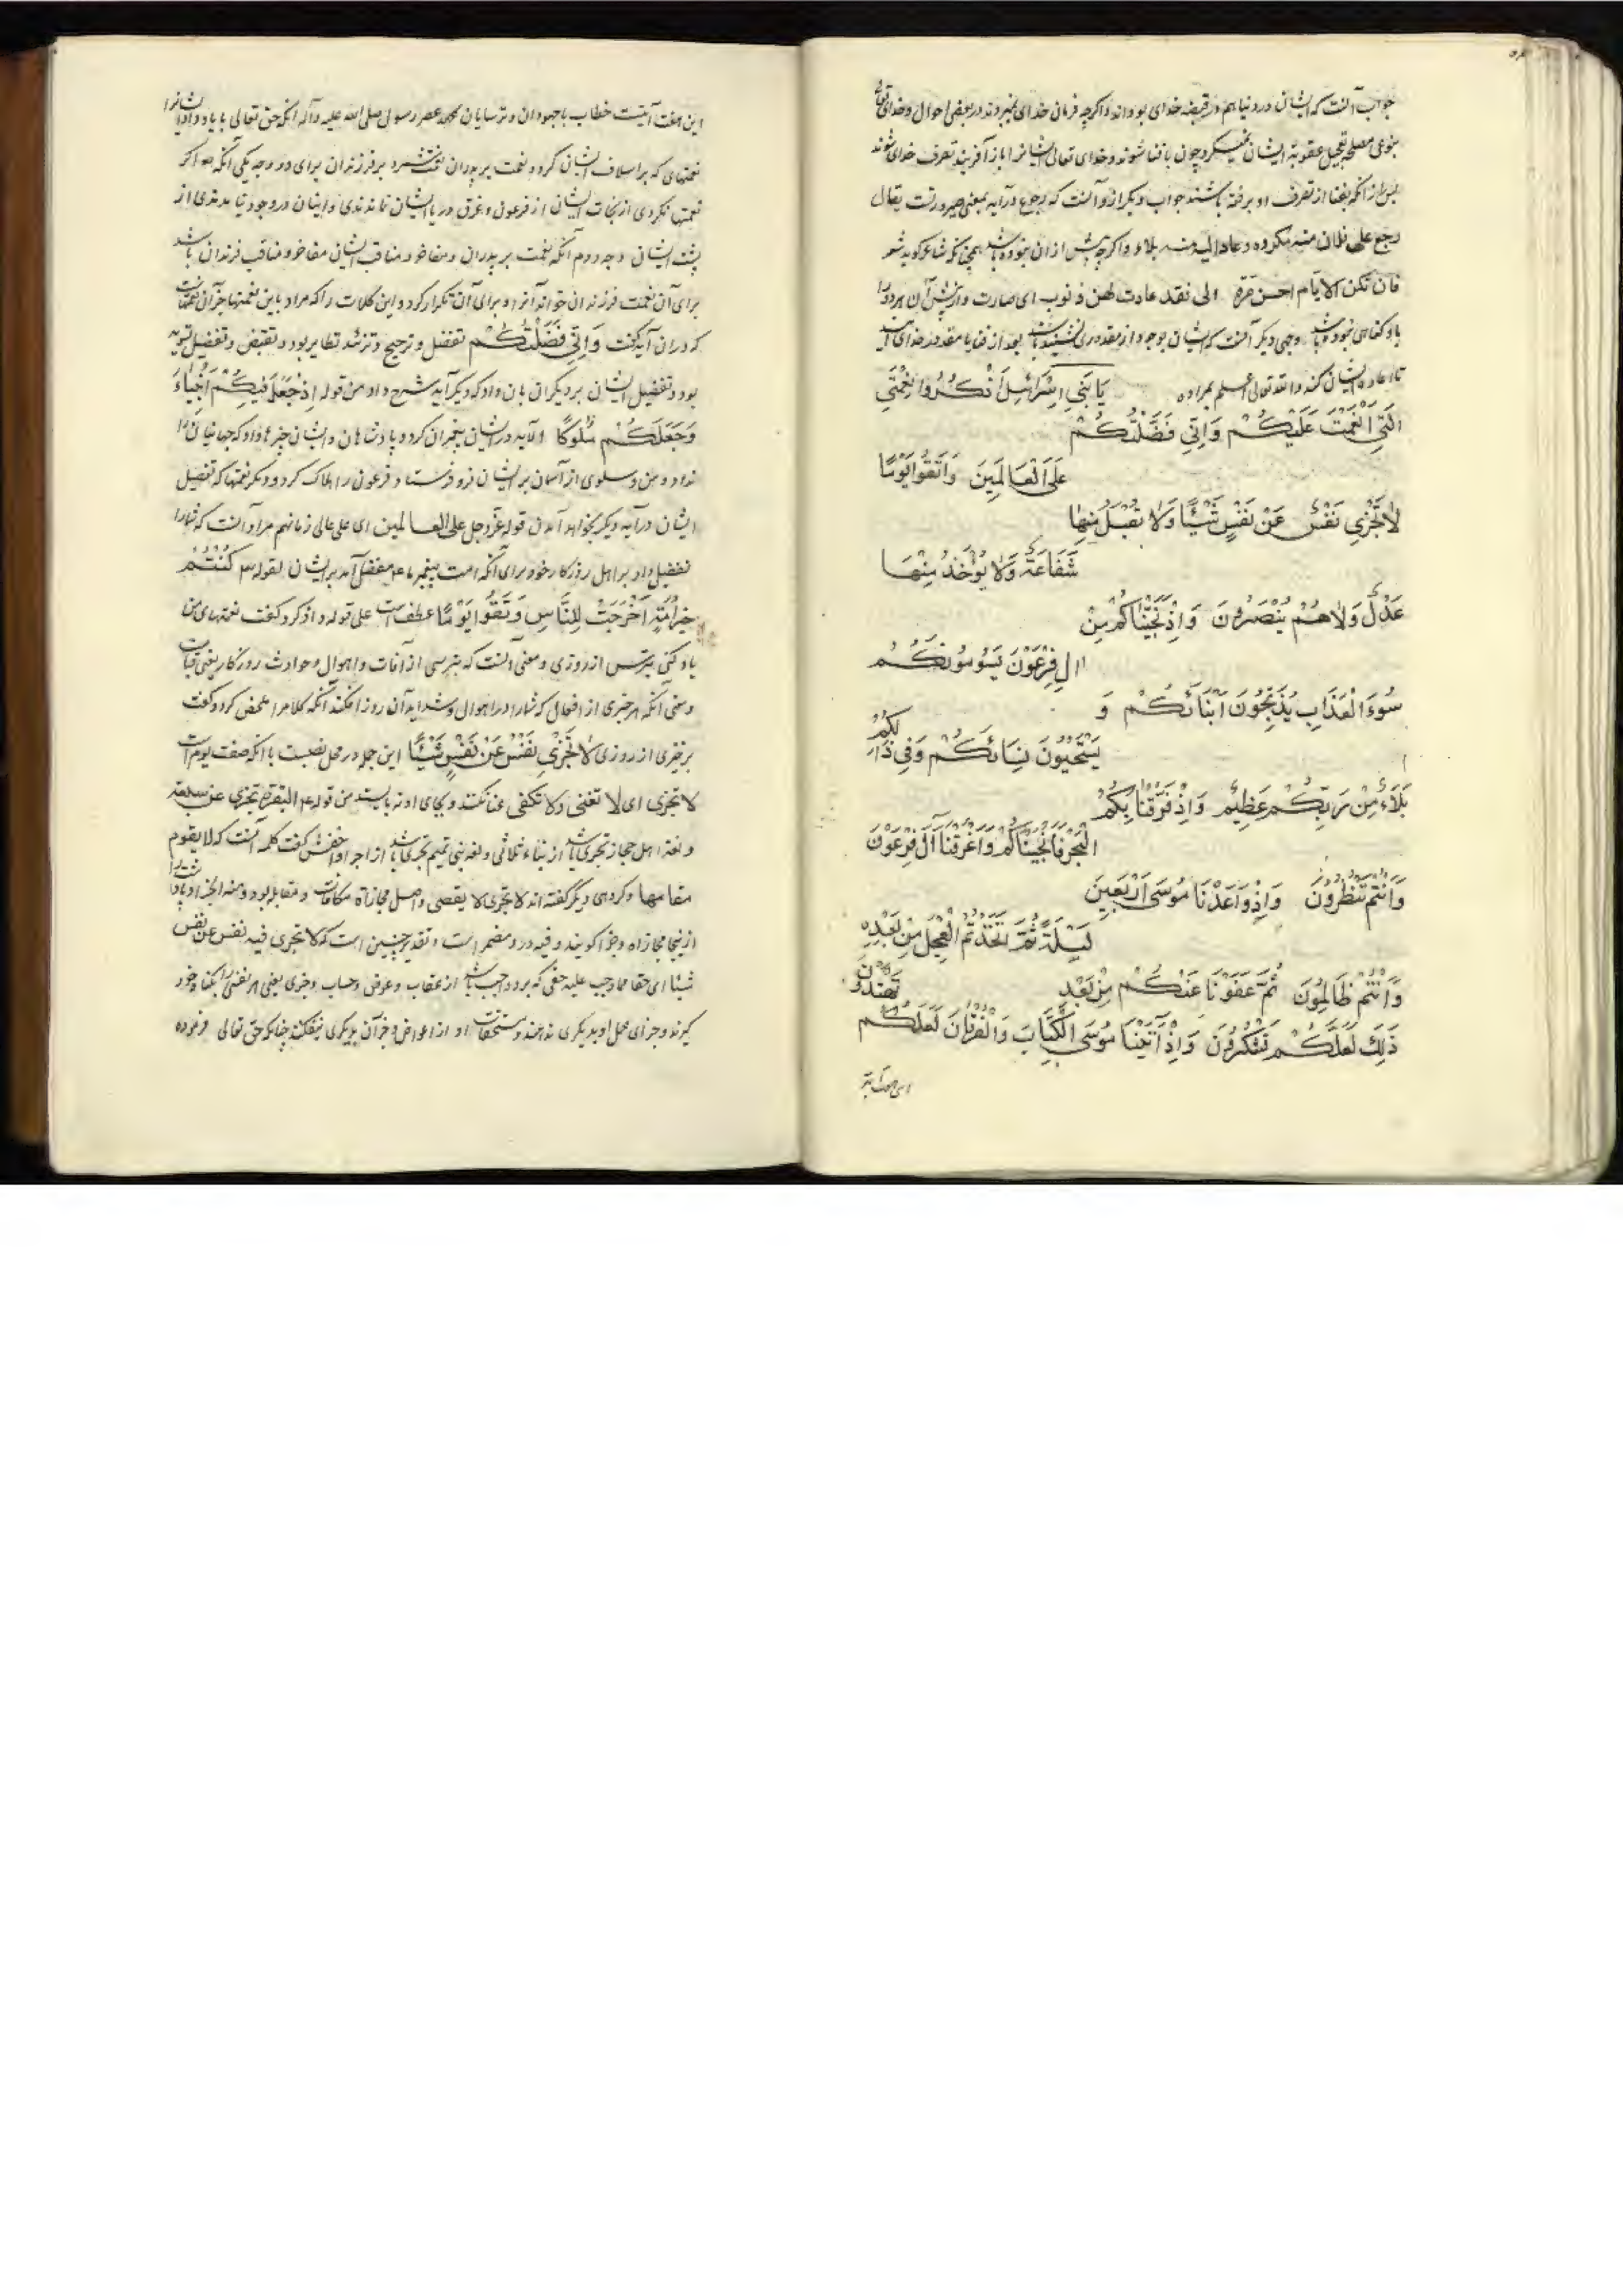 جواب آنست که ایشان در دنیا هم در قبضه خدای بودند و اگرچه فرمان خدای نمیبردند در بعضی احوال و خدای تعالی
بنوعی مصلحة تعجیل عقوبة ایشان نمیکرد چون با فنا شوند و خدای تعالی ایشانرا باز آفریند تعرف خدای شوند
پس از آنکه بفنا از تصرف او برفته باشند جواب دیگر از و آنست که رجوع در آیه بمعنی صیرورتست یقال
رجع علی فلان منه مکروه و عاد الیه منه بلاء و اگرچه پیش از ان نبوده باشد همچنانکه شاعر کوید شعر
فان تکن الایام احسن مرة الی نقد عادت لهن ذنوب ای صارت و ازپیش آن هر دو را
با او کناهی نبوده باشد وجهی دیگر آنست که ایشان بوجود از مقدوری بشنیده باشد بعد از فنا با مقدور خدای آیند
تا اعاده ایشان کند والله تعالی اعلم بمراده یَا بَنِی اِسْرَائِیلَ اذْکُرُوا نِعْمَتِیَ
الَّتِی اَنْعَمْتُ عَلَیْکُمْ وَاِنِّی فَضَّلْتُکُمْ
عَلَی الْعَالَمِینَ وَاتَّقُوا یَوْمًا
لَا تَجْزِی نَفْسٌ عَنْ نَفْسٍ شَیْئًا وَلَا یُقْبَلُ مِنْهَا
شَفَاعَةٌ وَلَا یُؤْخَذُ مِنْهَا
عَدْلٌ وَلَا هُمْ یُنْصَرُونَ وَاِذْ نَجَّیْنَاکُمْ مِنْ
الِ فِرْعَوْنَ یَسُومُونَکُمْ
سُوءَ الْعَذَابِ یُذَبِّحُونَ اَبْنَائَکُمْ وَ
یَسْتَحْیُونَ نِسَائَکُمْ وَفِی ذَالِکُمْ
بَلَاءٌ مِنْ رَبِّکُمْ عَظِیمٌ وَاِذْ فَرَقْنَا بِکُمُ
الْبَحْرَ فَاَنْجَیْنَاکُمْ وَاَغْرَقْنَا آلَ فِرْعَوْنَ
وَاَنْتُمْ تَنْظُرُونَ وَاِذْ وَاعَدْنَا مُوسَی اَرْبَعِینَ
لَیْلَةً ثُمَّ اتَّخَذْتُمُ الْعِجْلَ مِنْ بَعْدِهِ
وَاَنْتُمْ ظَالِمُونَ ثُمَّ عَفَوْنَا عَنْکُمْ مِنْ بَعْدِ
ذَلِکَ لَعَلَّکُمْ تَشْکُرُونَ وَاِذْ آتَیْنَا مُوسَی الْکِتَابَ وَالْفُرْقَانَ لَعَلَّکُمْ تَهْتَدُونَ
این هفت آیتست خطاب با جهودان و ترسایان عهد عصر رسول صلی الله علیه وآله انکه حق تعالی با یاد داد ایشانرا
نعمتهای که بر اسلاف ایشان کرد و نعمت بر پدران نعمت شمرد بر فرزندان برای دو وجه یکی آنکه اگر
نعمتها نکردی از نجات ایشان از فرعون و غرق دریا ایشان نماندندی و اینان در وجود نیامدندی از
پشت ایشان وجه دوم آنکه نعمت بر پدران و مفاخر و مناقب ایشان مفاخر و مناقب فرزندان باشد
برای آن نعمت فرزندان خواند آنرا و برای آن تکرار کرد و این کلمات را که مراد باین نعمتها جز آن نعمتهاست
که در ان آیه کفت وَاِنِّی فَضَّلْتُکُمْ تفضل و ترجیح و تزئید نظایر بود و تنقیض و تفضیل تسویه
بود و تفضیل ایشان بر دیکران بان داد که دیکر آیه شرح داد من قوله اِذْ جَعَلَ فِیکُمْ اَنْبِیَاءَ
وَجَعَلَکُمْ مُلُوکًا الآیه در ایشان پیغمبران کرد و پادشاهان و ایشان چیزها داد که جهانیان را
نداد و من و سلوی از آسمان بر ایشان فرو فرستاد و فرعون را هلاک کرد و دیکر نعمتها که تفضیل
ایشان در آیه دیکر بخواهد آمدن قوله عزوجل علی العالمین ای علی عالی زمانهم مراد آنست که شما را
تفضیل داد بر اهل روزکار خود برای آنکه امت پیغمبر ما ع مفضل آمد بر ایشان لقوله کُنْتُمْ
خَیْرَ اُمَّةٍ اُخْرِجَتْ لِلنَّاسِ وَتَّقُوا یَوْمًا عطفست علی قوله و اذکروا کفت نعمتهای من
یاد کنی بترس از روزی و معنی آنست که بترسی از آفات و اهوال و حوادث روزکار یعنی قیامت
و معنی آنکه هر خیری از افعال که شما را در اهوال و شداید آن روز افکند آنکه کلام را ملخص کرد و کفت
برخیزی از روزی لَا تَجْزِی نَفْسٌ عَنْ نَفْسٍ شَیْئًا این جمله در محل نصبست با آنکه صفت یوم است
لا تجزی ای لا تغنی ولا تکفی غنا نکند و بجای او نه بایستد من قوله ع البقرة تجزی عن سبعة
و لغة اهل حجاز تجزی باشد از بناء ثلاثی و لغه بنی تمیم تجزی باشد از اجزا و اخفش کفت کلمه آنست که لا یقوم
مقامها و کروهی دیکر کفته اند لا تجزی لا یقضی و اصل مجازاة مکافات و مقابله بود و منه الجزاء پاداشت را
ازینجا مجازاه و جزا کویند و فیه درو مضمر است و تقدیر چنین است که لا تجزی فیه نفس عن نفس
شیئا ای حقا مما وجب علیه حقی که برو واجب باشد از عقاب و عوض و حساب و جزی یعنی هر نفسی را بکناه خود
کیرند و جزای عمل او بدیکری ندهند و مستحقات او از اعواض و جز آن بدیکری نیفکنند چنانکه حق تعالی فرموده